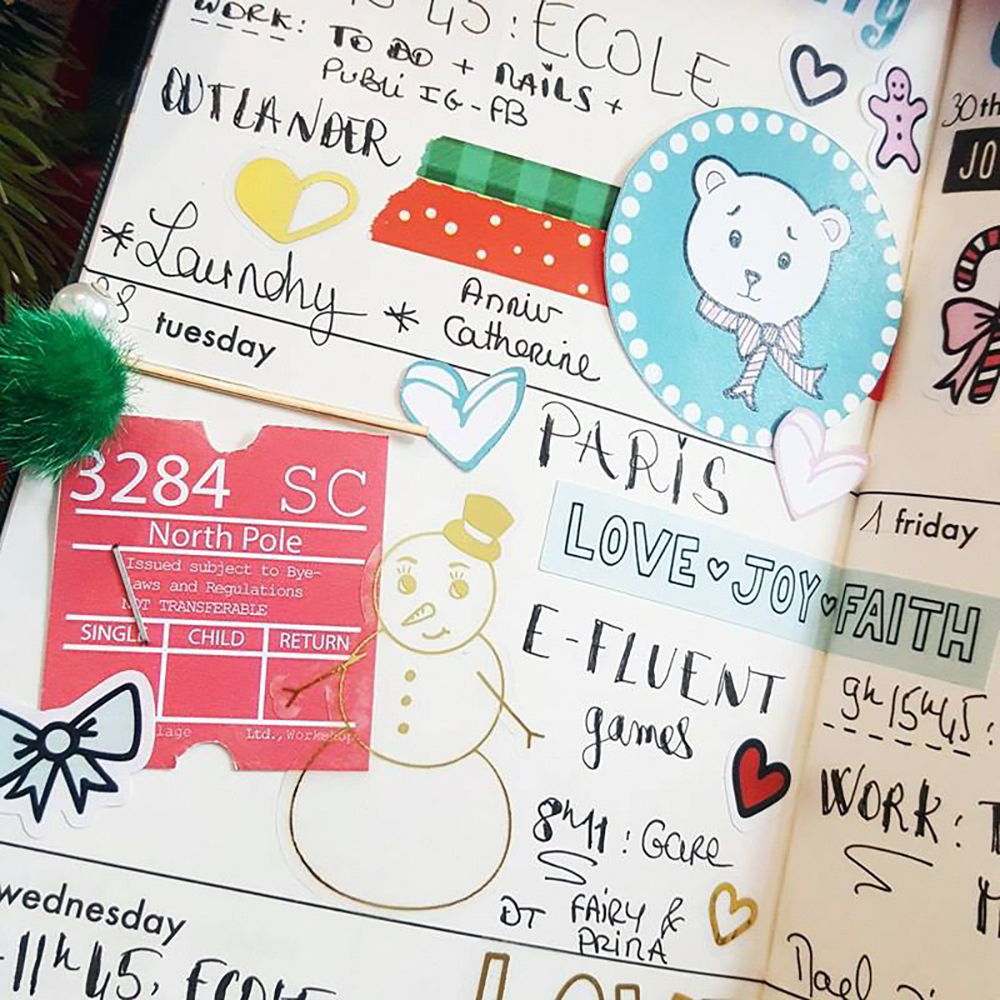 45 : ECOLE
WORK: TO DO + NAILS +
PUBLi IG-FB
OUTLANDER
* Laundry * Anniv
Catherine
tuesday
3284 SC
North Pole
Issued subject to Bye-
laws and Regulations
NOT TRANSFERABLE
SINGLE CHILD RETURN
lage Ltd., Workshop
PARiS
LOVE JOY FAITH
E-FLUENT
games
8h11 : Gare
DT FAIRY &
PRiNA
wednesday
11h45, ECOLE
30th
JO
1 friday
9h 15h45 :
WORK : T